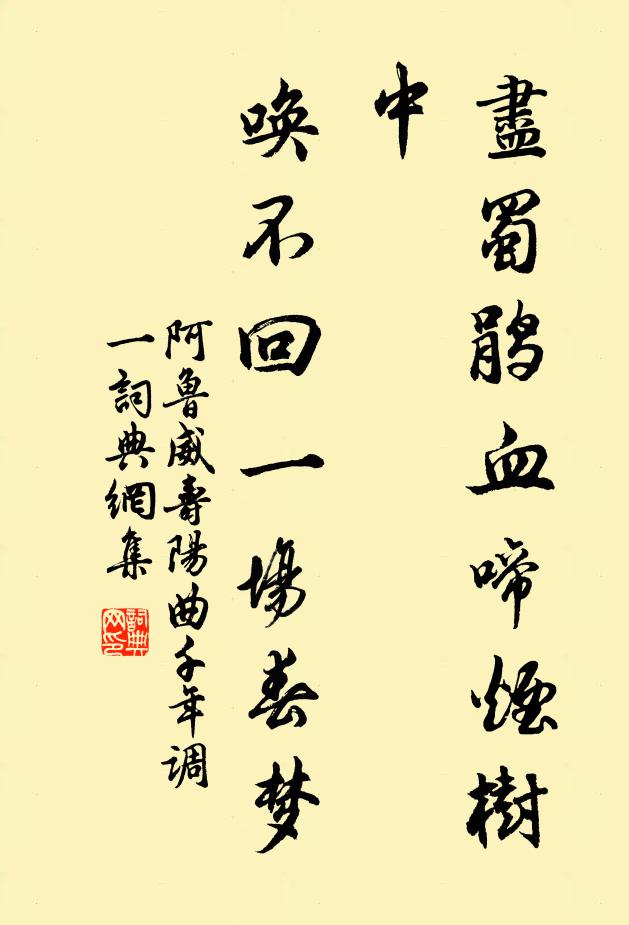 盡蜀鵑血啼煙樹
中
喚不回一場春梦
阿魯威壽陽曲千年调
一詞典網集
詞典網印